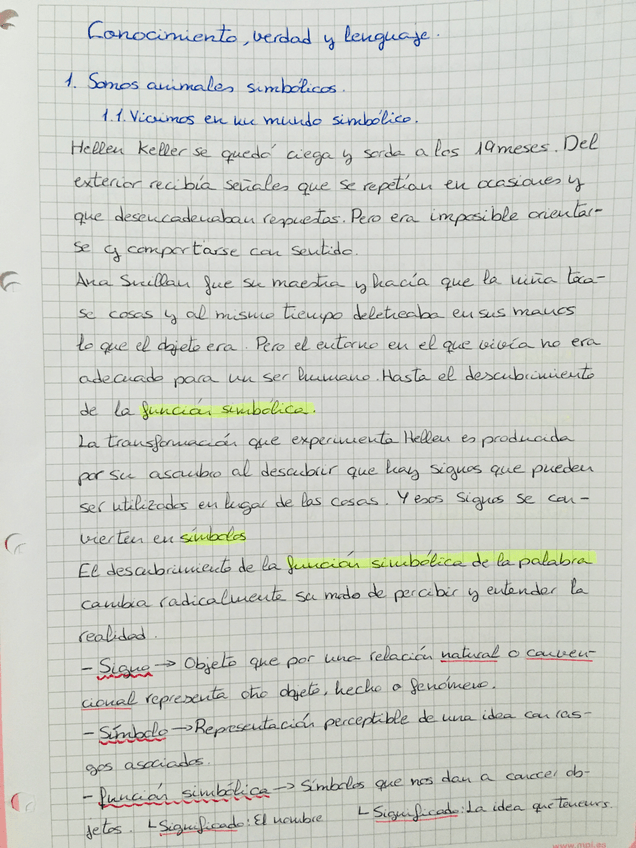 Conocimiento, verdad y lenguaje.
1. Somos animales simbólicos.
1.1. Vivimos en un mundo simbólico.
Hellen Keller se quedó ciega y sorda a los 19 meses. Del
exterior recibía señales que se repetían en ocasiones y
que desencadenaban respuestas. Pero era imposible orientar-
se y comportarse con sentido.
Ana Sullan fue su maestra y hacía que la niña toca-
se cosas y al mismo tiempo deletreaba en sus manos
lo que el objeto era. Pero el entorno en el que vivía no era
adecuado para un ser humano. Hasta el descubrimiento
de la función simbólica.
La transformación que experimenta Hellen es producida
por su asombro al descubrir que hay signos que pueden
ser utilizados en lugar de las cosas. Y esos signos se con-
vierten en símbolos
El descubrimiento de la función simbólica de la palabra
cambia radicalmente su modo de percibir y entender la
realidad.
- Signo → Objeto que por una relación natural o conven-
cional representa otro objeto, hecho o fenómeno.
- Símbolo → Representación perceptible de una idea con ras-
gos asociados.
- función simbólica → Símbolos que nos dan a conocer ob-
jetos. ↳ Significado: El nombre ↳ Significado: La idea que tenemos.
www.mpi.es